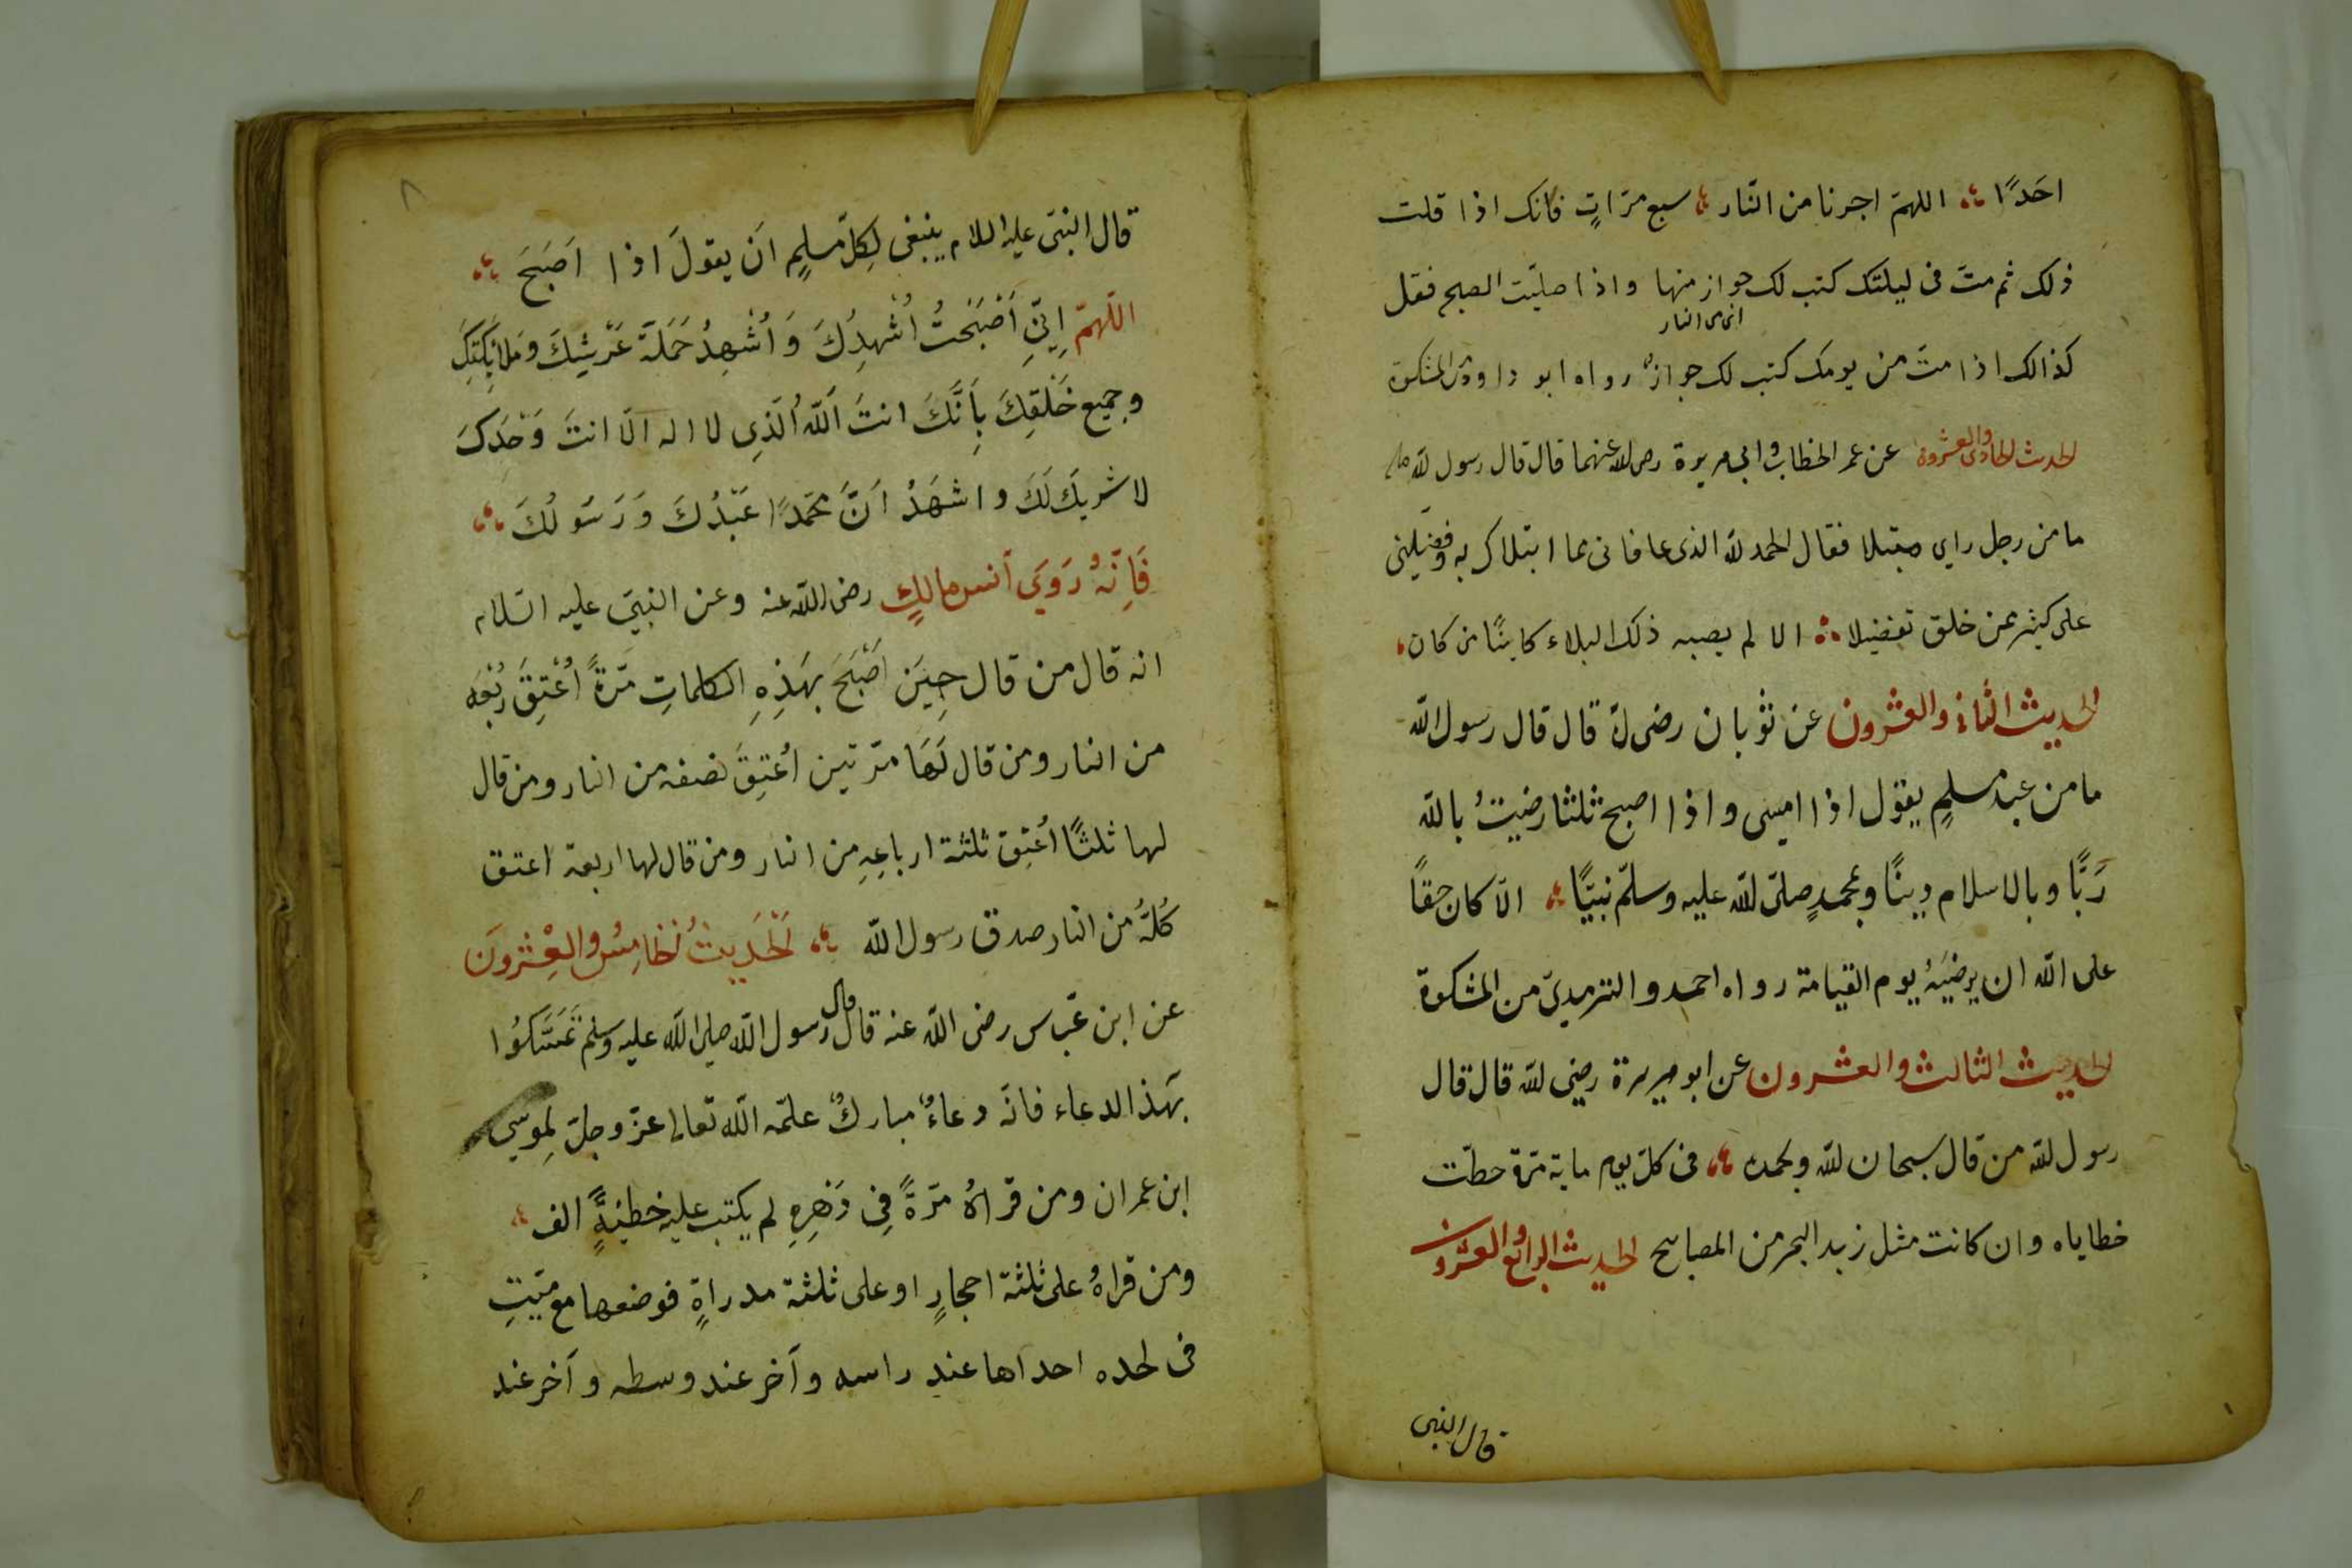 احَدًا اللهمّ اجرنا من النّار سبع مرّاتٍ فانك اذا قلت
ذلك ثم متّ فى ليلتك كتب لك جواز منها واذا صليّت الصبح فقل
اى من النار
كذالك اذا متّ من يومك كتب لك جوازٌ رواه ابو داود المشكوة
الحديث الحادى والعشرون عن عمر الخطاب وابى هريرة رضى الله عنهما قال قال رسول الله
ما من رجل راى مبتلا فقال الحمد لله الذى عافانى مما ابتلاك به وفضّلنى
على كثير ممن خلق تفضيلا الا لم يصبه ذلك البلاء كاينًا من كان
الحديث الثانى والعشرون عن ثوبان رضى قال قال رسول الله
ما من عبد مسلمٍ يقول اذا امسى واذا اصبح ثلثا رضيتُ بالله
رَبًّا وبالاسلام دينًا وبمحمدٍ صلّى الله عليه وسلّم نبيّا الّا كان حقاً
على الله ان يرضيَهُ يوم القيامة رواه احمد والترمدىّ من المشكوة
الحديث الثالث والعشرون عن ابو هريرة رضى الله قال قال
رسول الله من قال سبحان الله وبحمده فى كلّ يوم ماية مّرة حطّت
خطاياه وان كانت مثل زبد البحر من المصابيح الحديث الرابع والعشرون
قال النبى
٨
قال النبىّ عليه السلام ينبغى لِكلّ مسلمٍ انَ يقولَ اذا اَصَبَحَ
اللّهمّ اِنِّى اَصْبَحْتُ اُشْهِدُكَ وَاُشْهِدُ حَمَلَةَ عَرْشِكَ وَمَلَائِكَتِكَ
وجميع خَلْقِكَ بِاَنَّكَ انتَ اَللّهُ الَّذِى لا اله الّا انتَ وَحْدَكَ
لا شريكَ لَكَ واشهَدُ اَنَّ محَمَّدًا عَبْدُكَ وَرَسُولُكَ
فَاِنَّهُ رَوَيَ اَنس مالكٍ رضى الله عنه وعن النبىّ عليه السّلام
انه قال من قال حِيَن اَصْبَحَ بهَذِهِ الكلماتِ مَّرةً اُعْتِقَ رُبْعَه
من النار ومن قال لَهَا مّرتين اُعتِقَ نصفه من النار ومن قال
لها ثلثًا اُعْتِقَ ثلثة ارباعِهِ من النار ومن قال لها اربعة اعتق
كُلّهُ من النار صدق رسول الله اَلْحَدِيثُ الْخَامِسُ والعِشْرُونَ
عن ابن عّباس رضى الله عنه قال قال رسول الله صلى الله عليه وسلم تَمَسَّكوُا
بَهذا الدعاء فانّه دعاءٌ مباركٌ علمّه الله تعالى عزّ وجلّ لِموسى
ابن عمران ومن قراهُ مّرةً فِى دَهْرِهِ لم يكتب عليه خطيئةٍ الف
ومن قراهُ على ثلثة احجارٍ او على ثلثة مدراةٍ فوضعها مع ميّتِ
فى لحده احداها عند راسه وآخر عند وسطه وآخر عند